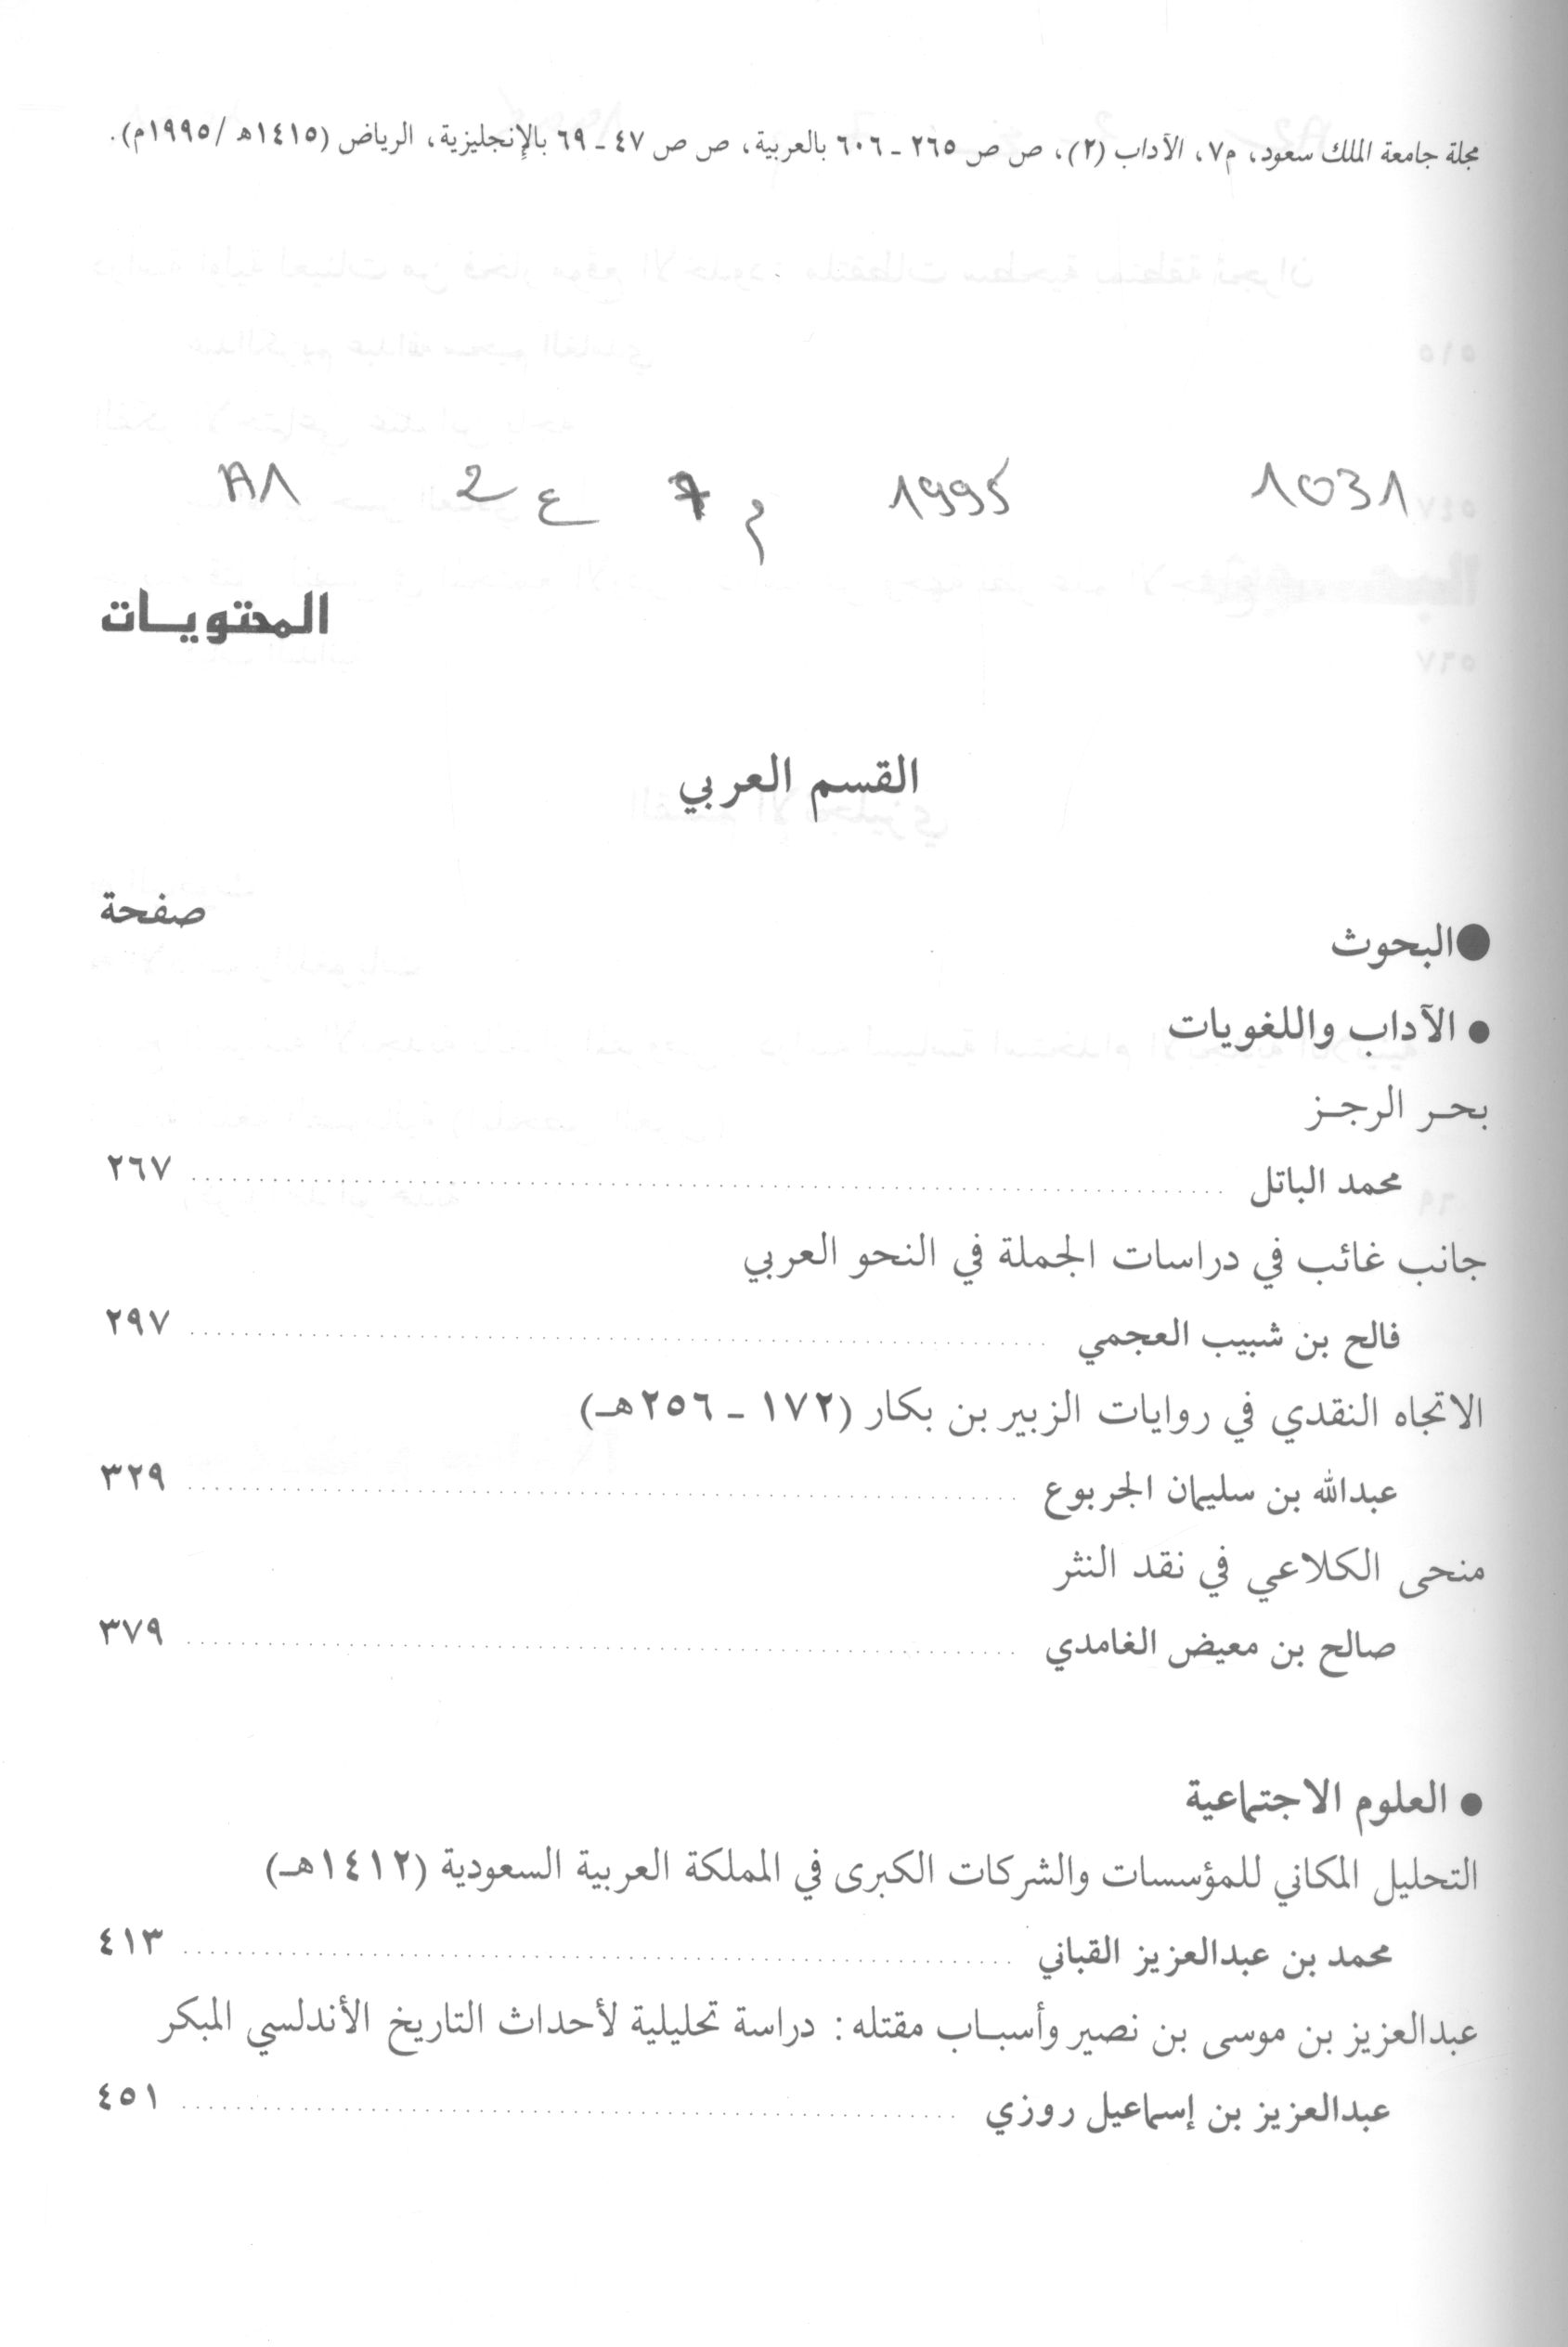 مجلة جامعة الملك سعود، م٧، الآداب (٢)، ص ص ٢٦٥ ـ ٦٠٦ بالعربية، ص ص ٤٧ ـ ٦٩ بالإنجليزية، الرياض (١٤١٥هـ /١٩٩٥م).
1031 1995 م 7 ع 2 A1
المحتويــات
القسم العربي
صفحة
● البحوث
• الآداب واللغويات
بحـر الرجـز
محمد الباتل ........ ٢٦٧
جانب غائب في دراسات الجملة في النحو العربي
فالح بن شبيب العجمي ........ ٢٩٧
الاتجاه النقدي في روايات الزبير بن بكار (١٧٢ ـ ٢٥٦هـ)
عبدالله بن سليمان الجربوع ........ ٣٢٩
منحى الكلاعي في نقد النثر
صالح بن معيض الغامدي ........ ٣٧٩
• العلوم الاجتماعية
التحليل المكاني للمؤسسات والشركات الكبرى في المملكة العربية السعودية (١٤١٢هـ)
محمد بن عبدالعزيز القباني ........ ٤١٣
عبدالعزيز بن موسى بن نصير وأسبـاب مقتله: دراسة تحليلية لأحداث التاريخ الأندلسي المبكر
عبدالعزيز بن إسماعيل روزي ........ ٤٥١